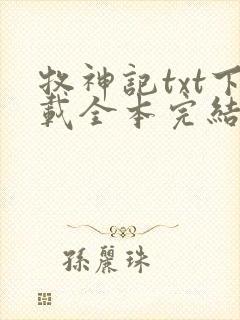 牧神記txt下
載全本完結
孫麗珠